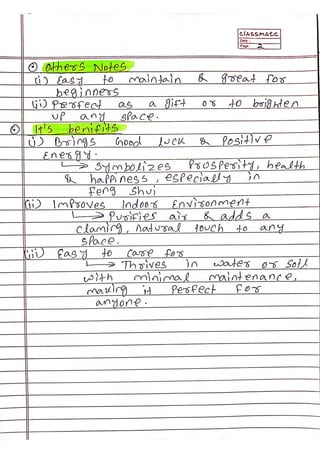 classmate
Date
Page 2
Others Notes
(i) Easy to maintain & great for
beginners
(ii) Perfect as a gift or to brighten
up any space.
It's benifits
i) Brings Good luck & Positive
Energy.
↳ Symbolizes Prosperity, health
& happiness, especially in
feng shui
(ii) Improves Indoor Environment
↳ Purifies air & adds a
claming, natural touch to any
space.
(iii) Easy to care for
↳ Thrives in water or soil
with minimal maintenance,
making it Perfect for
anyone.